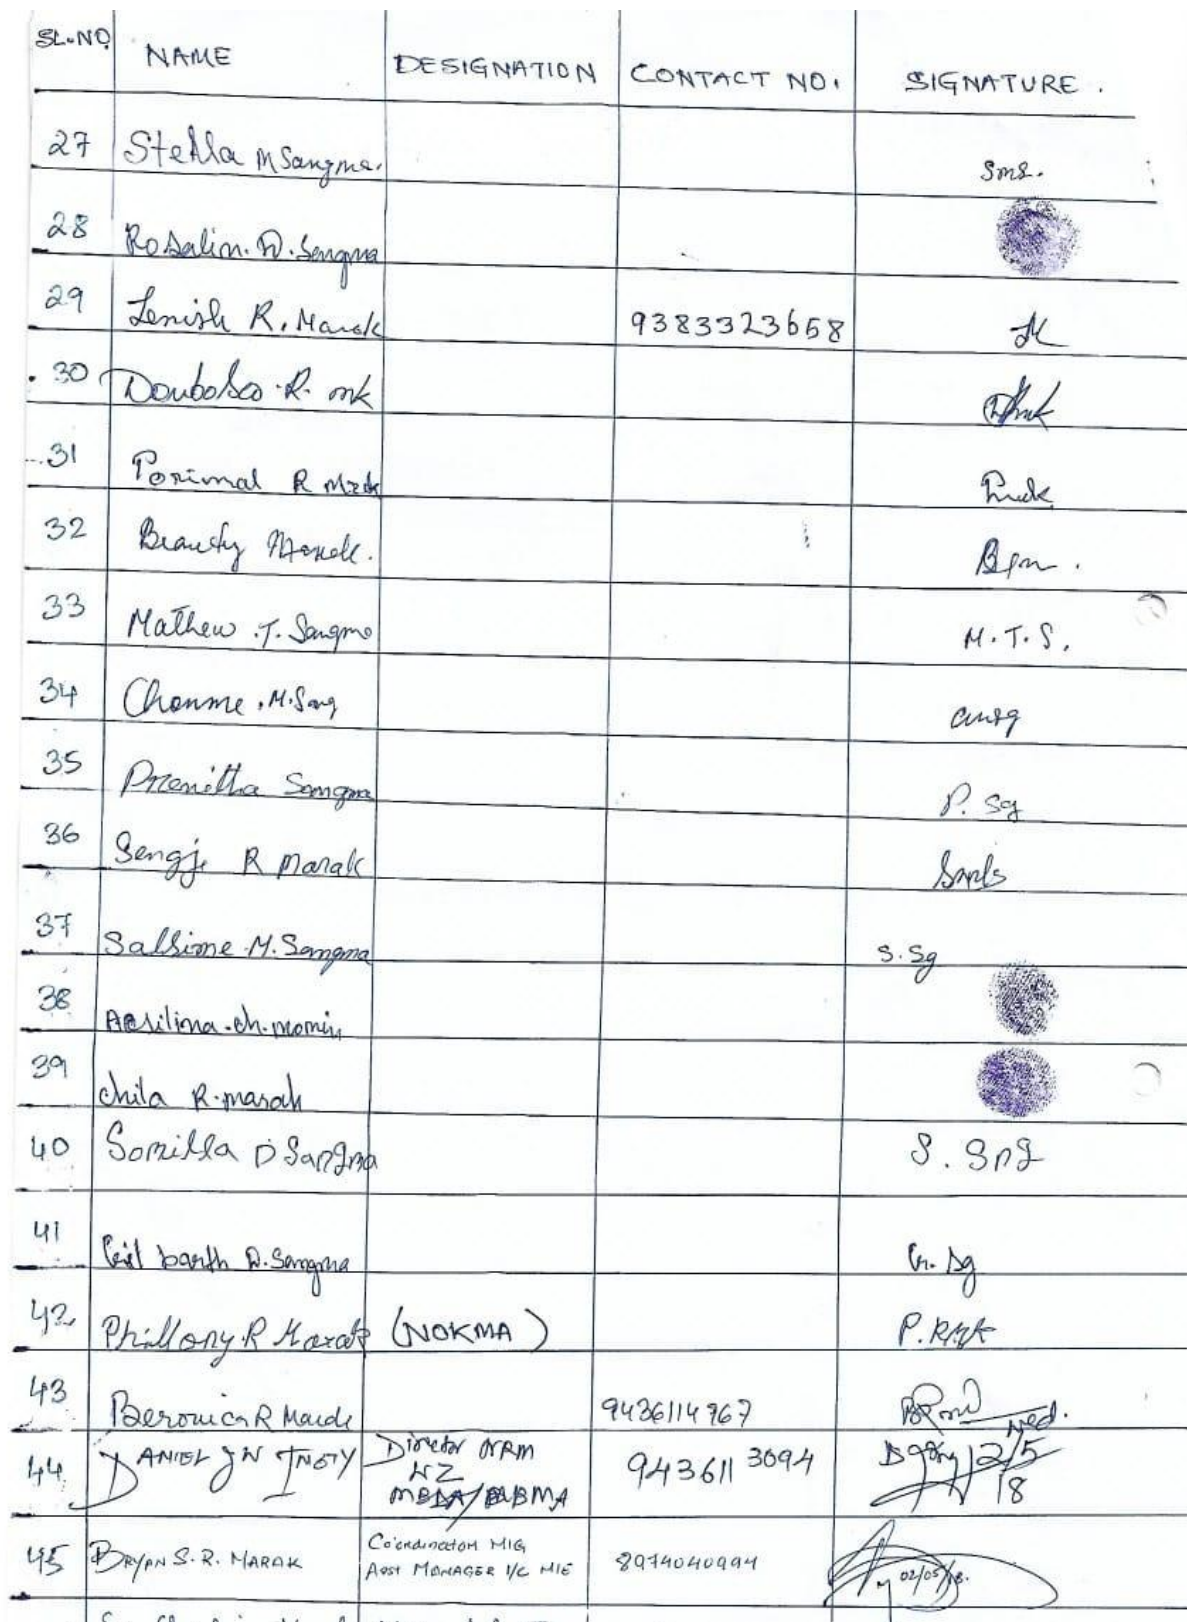 SL.NO NAME DESIGNATION CONTACT NO. SIGNATURE.
27 Stella M Sangma. SmS.
28 Rosalin. D. Sangma
29 Lenish R. Marak 9383323658
30 Donbosco. R. mk
31 Porimal R Mrak
32 Beauty Marak.
33 Mathew .T. Sangma M.T.S.
34 Chonme .M.Sang
35 Prenitha Sangma P. Sg
36 Sengje R Marak
37 Salsime M. Sangma S. Sg
38 ch. momin
39 chila R. marak
40 Somilla D Sangma S. Sng
41 barth D. Sangma G. Sg
42 Phillony. R Marak (NOKMA) P. RMK
43 Beronica R Marak 9436114967
44 DANIEL J W INGTY Director NRM 9436113094 2/5
NZ 18
MBDA/MBMA
45 BRYAN S. R. MARAK Coordinator MIG 8974040994 02/05/18.
Asst MANAGER I/C MIE